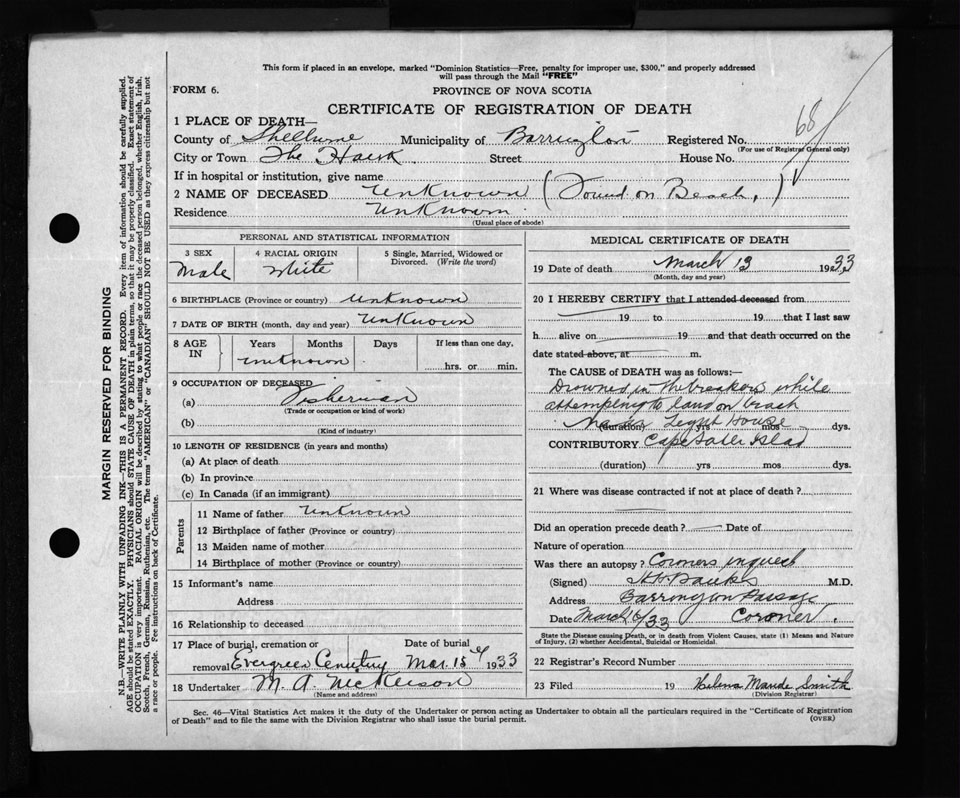 This form if placed in an envelope, marked "Dominion Statistics—Free, penalty for improper use, $300," and properly addressed
will pass through the Mail "FREE"
FORM 6.
PROVINCE OF NOVA SCOTIA
CERTIFICATE OF REGISTRATION OF DEATH
68
1 PLACE OF DEATH—
County of Shelburne Municipality of Barrington Registered No.
(For use of Registrar General only)
City or Town The Hawk Street House No.
If in hospital or institution, give name
2 NAME OF DECEASED Unknown (Found on Beach,)
Residence Unknown
(Usual place of abode)
PERSONAL AND STATISTICAL INFORMATION
3 SEX 4 RACIAL ORIGIN 5 Single, Married, Widowed or
Divorced. (Write the word)
Male White
6 BIRTHPLACE (Province or country) Unknown
7 DATE OF BIRTH (month, day and year) Unknown
8 AGE IN Years Months Days If less than one day,
unknown hrs. or min.
9 OCCUPATION OF DECEASED
(a) Fisherman
(Trade or occupation or kind of work)
(b)
(Kind of industry)
10 LENGTH OF RESIDENCE (in years and months)
(a) At place of death
(b) In province
(c) In Canada (if an immigrant)
Parents
11 Name of father Unknown
12 Birthplace of father (Province or country)
13 Maiden name of mother
14 Birthplace of mother (Province or country)
15 Informant's name
Address
16 Relationship to deceased
17 Place of burial, cremation or Date of burial
removal Evergreen Cemetery Mar. 15th 1933
18 Undertaker M. A. Nickerson
(Name and address)
MEDICAL CERTIFICATE OF DEATH
19 Date of death March 13 1933
(Month, day and year)
20 I HEREBY CERTIFY that I attended deceased from
19 to 19 that I last saw
h alive on 19 and that death occurred on the
date stated above, at m.
The CAUSE of DEATH was as follows:—
Drowned in the breakers while
attempting to land on beach
(duration) Light House yrs mos dys.
CONTRIBUTORY Cape Sable Island
(duration) yrs mos dys.
21 Where was disease contracted if not at place of death?
Did an operation precede death? Date of
Nature of operation
Was there an autopsy? Coroners inquest
(Signed) Banks M.D.
Address Barrington Passage
Date March 16/33 Coroner.
State the Disease causing Death, or in death from Violent Causes, state (1) Means and Nature
of Injury, (2) whether Accidental, Suicidal or Homicidal.
22 Registrar's Record Number
23 Filed 19 Helena Maude Smith
(Division Registrar)
Sec. 46—Vital Statistics Act makes it the duty of the Undertaker or person acting as Undertaker to obtain all the particulars required in the "Certificate of Registration
of Death" and to file the same with the Division Registrar who shall issue the burial permit.
(OVER)
MARGIN RESERVED FOR BINDING
N.B.—WRITE PLAINLY WITH UNFADING INK—THIS IS A PERMANENT RECORD. Every item of information should be carefully supplied.
AGE should be stated EXACTLY. PHYSICIANS should STATE CAUSE OF DEATH in plain terms, so that it may be properly classified. Exact statement of
OCCUPATION is very important. RACIAL ORIGIN will be described by stating to what people or race the deceased person belonged, whether English, Irish,
Scotch, French, German, Russian, Ruthenian, etc. The terms "AMERICAN" or "CANADIAN" SHOULD NOT BE USED as they express citizenship but not
a race or people. See instructions on back of Certificate.